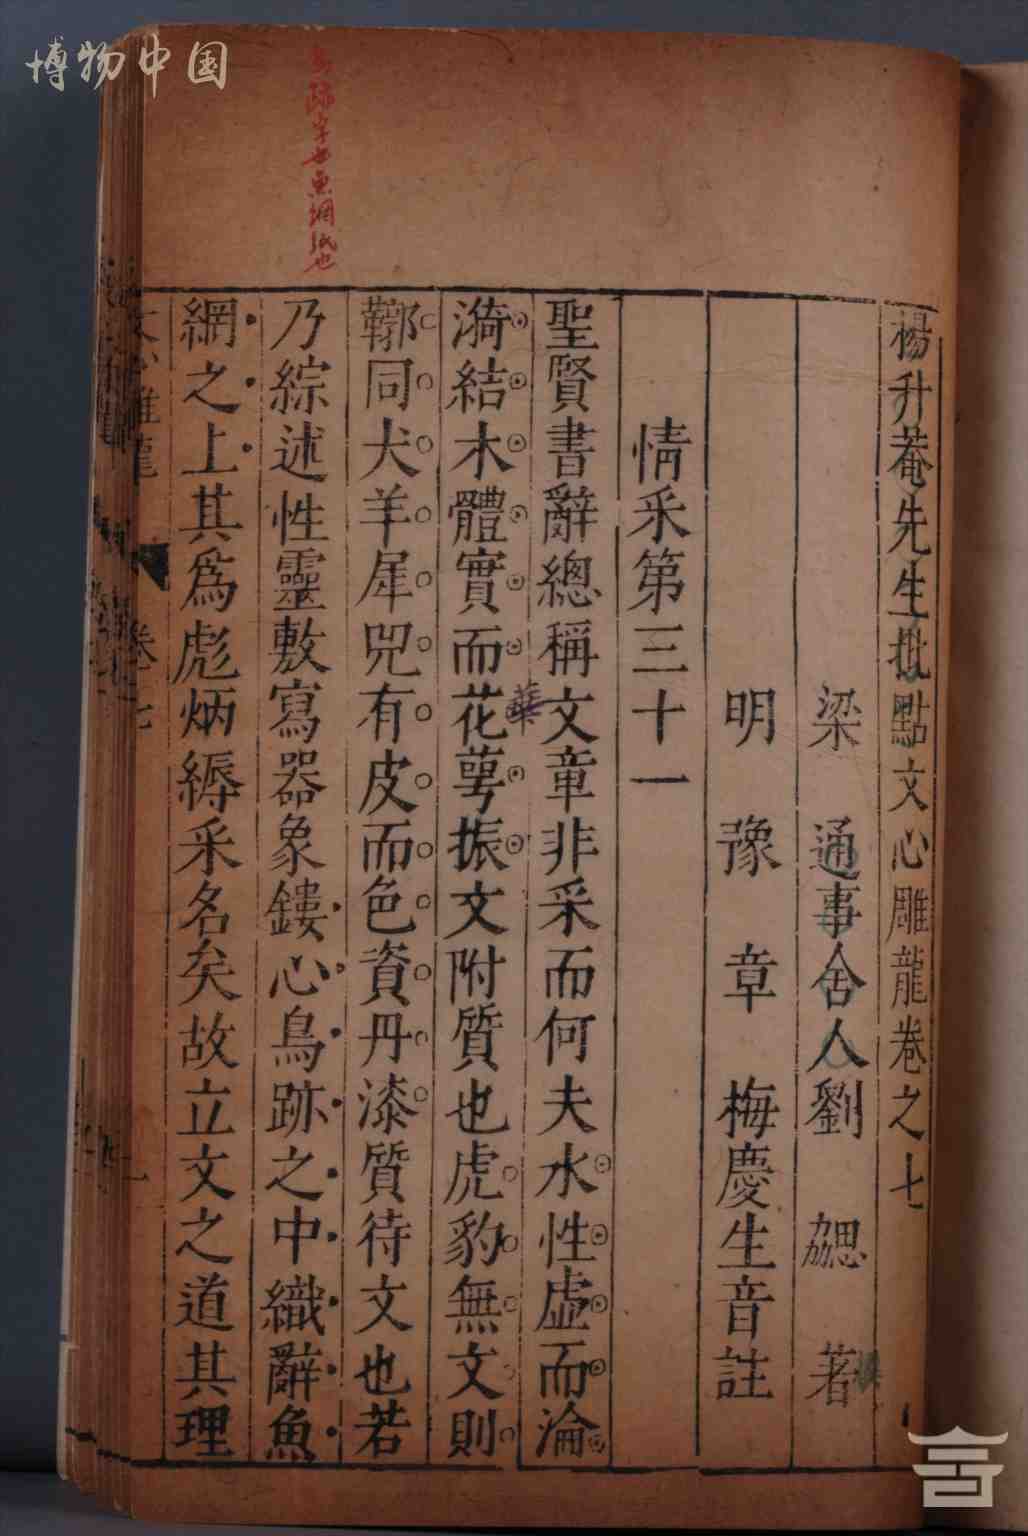 博物中国
楊升菴先生批點文心雕龍卷之七
梁 通事舍人劉 勰 著
明 豫 章 梅慶生音註
情采第三十一
聖賢書辭總稱文章非采而何夫水性虛而淪
漪結木體實而花萼振文附質也虎豹無文則
華
鞹同犬羊犀兕有皮而色資丹漆質待文也若
乃綜述性靈敷寫器象鏤心鳥跡之中織辭魚
網之上其爲彪炳縟采名矣故立文之道其理
跡字也魚網紙也
卷七